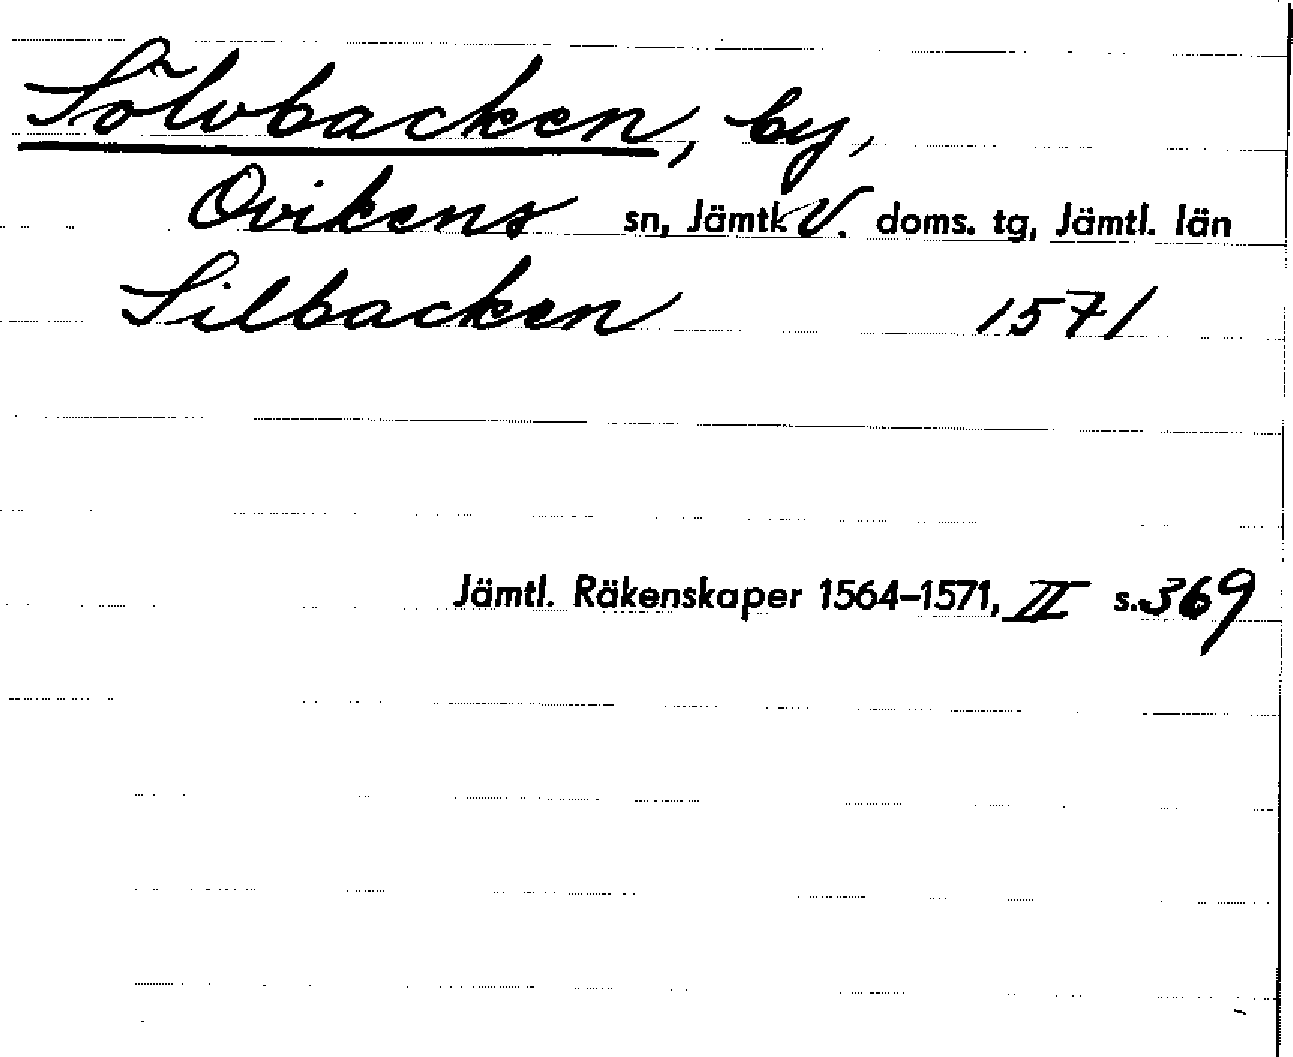 Sölvbacken, by,
Ovikens sn, Jämtl. V. doms. tg, Jämtl. län
Silbacken 1571
Jämtl. Räkenskaper 1564–1571, II s. 369